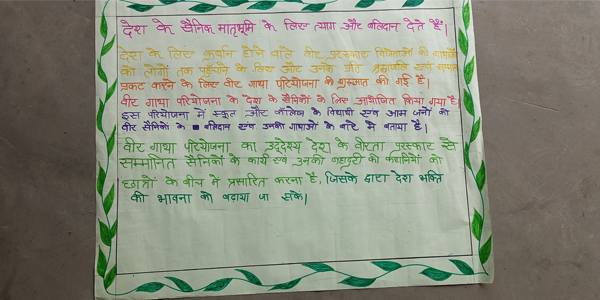 देश के सैनिक मातृभूमि के लिए त्याग और बलिदान देते हैं।
देश के लिए कुर्बान होने वाले वीर पुरस्कार विजेताओं की गाथाओं
को लोगों तक पहुंचाने के लिए और उनके प्रति श्रद्धांजलि एवं सम्मान
प्रकट करने के लिए वीर गाथा परियोजना की शुरुआत की गई है।
वीर गाथा परियोजना के देश के सैनिकों के लिए आयोजित किया गया है।
इस परियोजना में स्कूल और कॉलेज के विद्यार्थी एवं आम जनों को
वीर सैनिकों के बलिदान एवं उनकी गाथाओं के बारे में बताया है।
वीर गाथा परियोजना का उद्देश्य देश के वीरता पुरस्कार से
सम्मानित सैनिकों के कार्य एवं उनकी बहादुरी की कहानियों को
छात्रों के बीच में प्रसारित करना है, जिसके द्वारा देश भक्ति
की भावना को बढ़ाया जा सके।